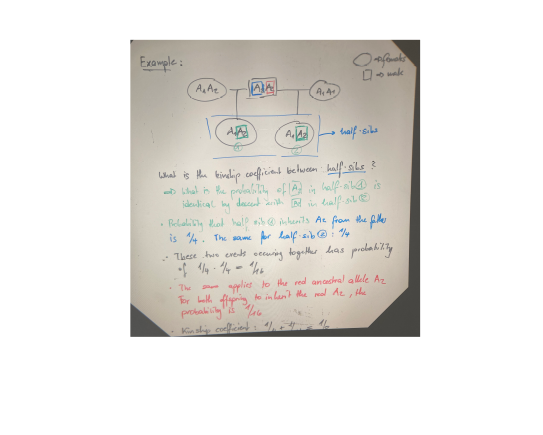 Example:
→ females
→ male
A₁A₂
A₁A₂
A₁A₂
A₁A₂
A₁A₂
→ half-sibs
① ②
What is the kinship coefficient between half-sibs ?
⇒ What is the probability of A₂ in half-sib ① is
identical by descent with A₂ in half-sib ②
• Probability that half sib ① inherits A₂ from the father
is 1/4. The same for half-sib ② : 1/4
• These two events occuring together has probability
of 1/4 · 1/4 = 1/16
• The same applies to the red ancestral allele A₂
For both offspring to inherit the red A₂, the
probability is 1/16
• Kinship coefficient :